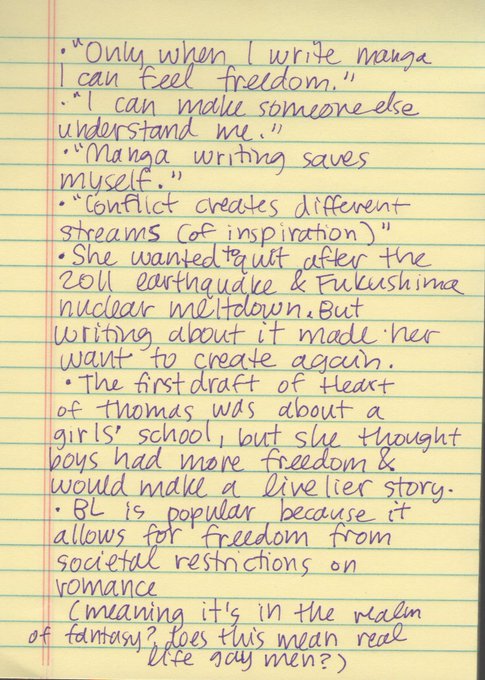 • "Only when I write manga
I can feel freedom."
• "I can make someone else
understand me."
• "Manga writing saves
myself."
• "Conflict creates different
streams (of inspiration)"
• She wanted to quit after the
2011 earthquake & Fukushima
nuclear meltdown. But
writing about it made her
want to create again.
• The first draft of Heart
of Thomas was about a
girls' school, but she thought
boys had more freedom &
would make a livelier story.
• BL is popular because it
allows for freedom from
societal restrictions on
romance
(meaning it's in the realm
of fantasy? Does this mean real
life gay men?)